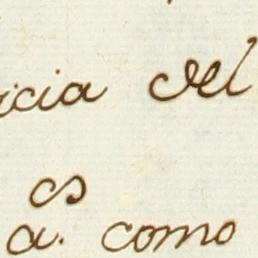 icia del
cs
a. como